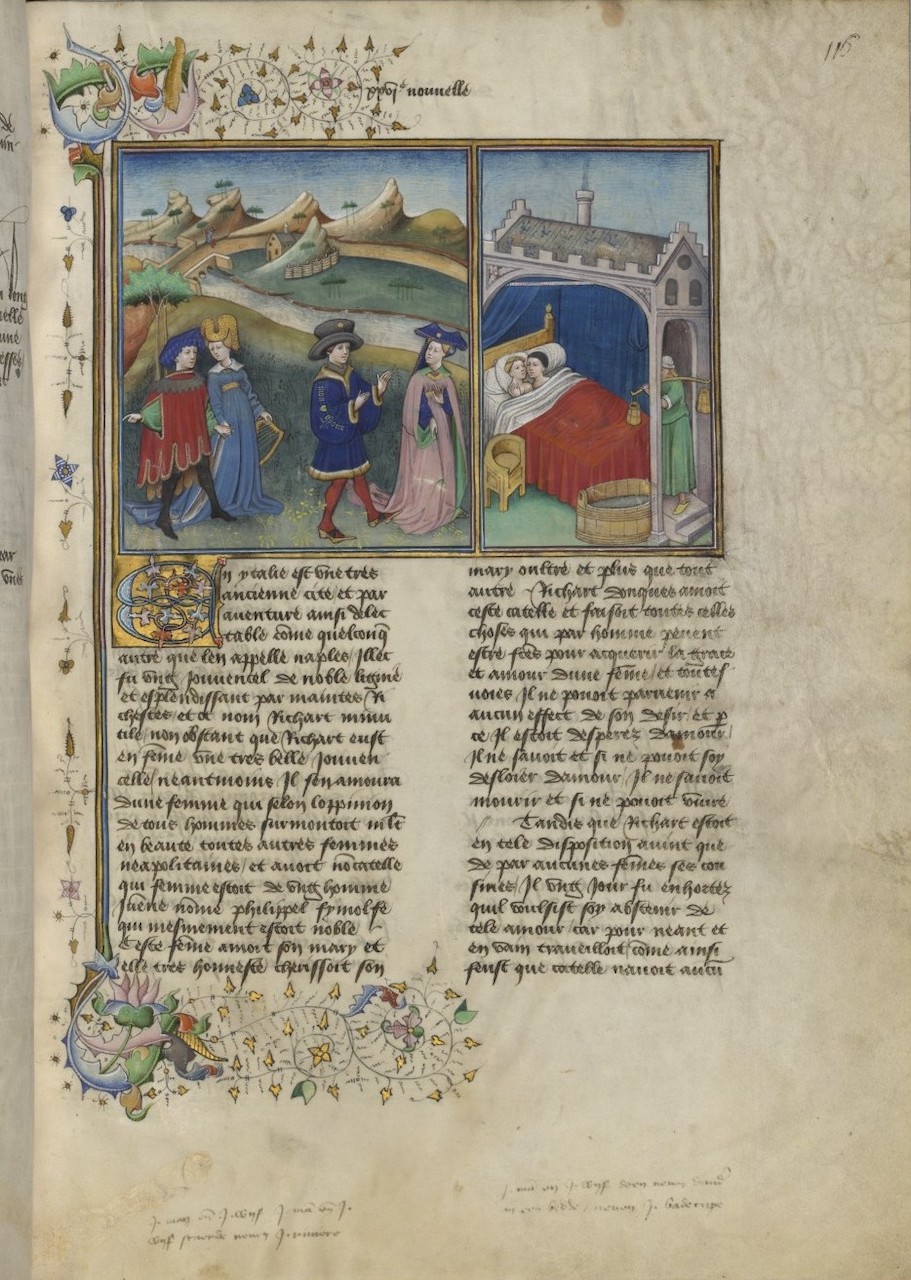 115
xxvi.e nouvelle
En ytalie est vne tres
ancienne cite et par
auenture ainsi delec
table cõme quelconq̃
autre que len appelle naples / Illec
fu vng Jouuencel de noble ligniee
et esplendissant par maintes Ri
chesses et et nom Richart minu
tile / non obstant que Richart eust
en feme vne tres belle Jouuen
celle / neantmoins Il senamoura
dune femme qui selon loppinion
de tous hommes surmontoit mlt
en beaute toutes autres femmes
neapolitaines / et auoit nõ catelle
qui femme estoit de vng homme
Juene nõme philippel symolfe
qui mesmement estoit noble
Ceste fẽme amoit son mary et
elle tres honneste cherissoit son
mary oultre et plus que tout
autre / Richart donques amoit
ceste catelle et faisoit toutes celles
choses qui par homme peuent
estre fc̃es pour acquerir la grace
et amour dune fẽme / et toutes
voies Il ne pouoit paruenir a
aucun effect de son desir / et p
ce Il estoit desperez damour /
Il ne sauoit et si ne pouoit soy
desloier damour / Il ne sauoit
mourir et si ne pouoit viure
// Tandis que Richart estoit
en tele disposition auint que
de par aucunes fẽmes ses cou
sines / Il vng Jour fu enhortez
quil voulsist soy abstenir de
tele amour car pour neant et
en vain trauailloit / cõme ainsi
feust que catelle nauoit aucũ
J. man en J. wijf J. man en J.
wijf neuen J. riuiere
J. man en J. wijf
in een bedde / neuen J. badecupe